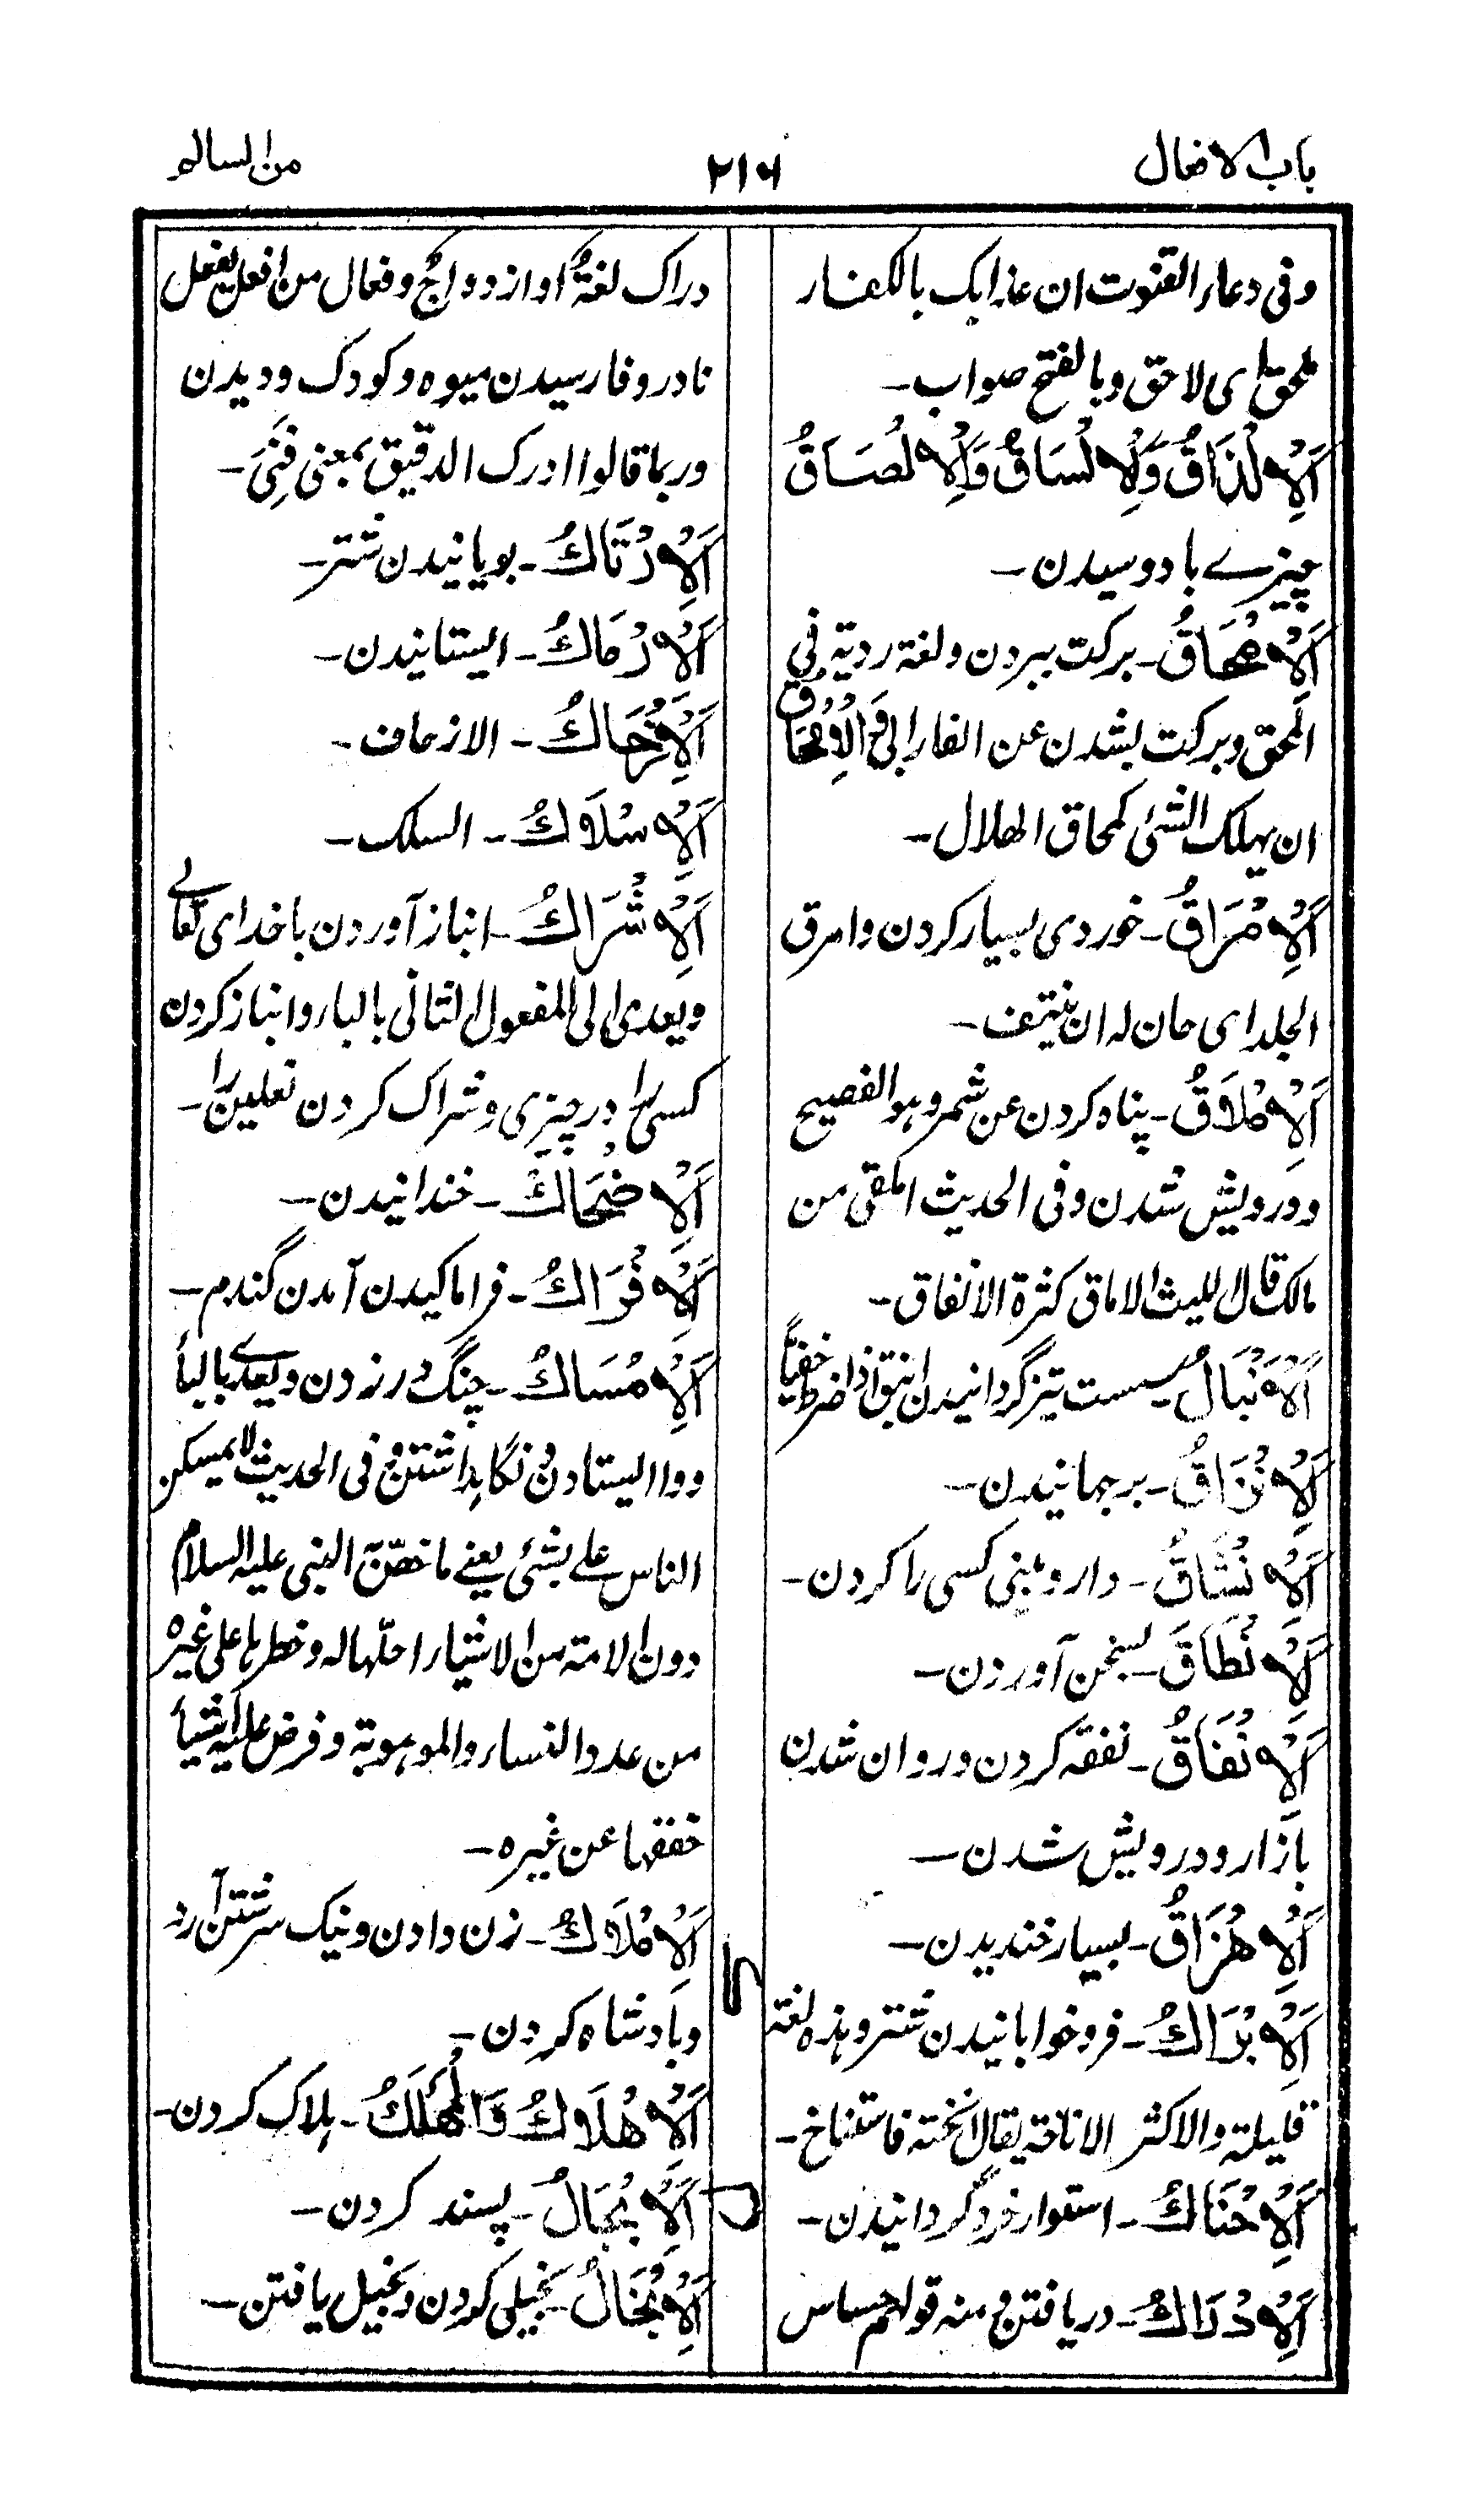 باب الافعال
۲۱۶
من السالم
وفی دعاء القنوت ان عذابک بالکفار
ملحق ای لاحق وبالفتح صواب۔
اَلْاِلْذَاقُ وَالْاِلْسَاقُ وَالْاِلْصَاقُ
چیزے بادوسیدن۔
اَلْاِمْحَاقُ۔ برکت ببردن ولغة ردیة فی
المحق وبرکت بشدن عن الفارابی وَالْاِمْحَاقُ
ان یهلک الشئ کمحاق الهلال۔
اَلْاِمْرَاقُ۔ خوردی بسیار کردن وامرق
الجلد ای حان له ان ینتف۔
اَلْاِمْلَاقُ۔ پناه کردن عن شمر وهو الفصیح
ودرویش شدن وفی الحدیث املقی من
مالک قال اللیث الاملاق کثرة الانفاق۔
اَلْاِنْبَاقُ تیز گردانیدن انبق اذا ضرط خفیًا
اَلْاِنْزَاقُ۔ برجهانیدن۔
اَلْاِنْشَاقُ۔ دارو ببینی کسی را کردن۔
اَلْاِنْطَاقَ۔ بسخن آوردن۔
اَلْاِنْفَاقُ۔ نفقه کردن وروان شدن
بازار ودرویش شدن۔
اَلْاِهْزَاقُ۔ بسیار خندیدن۔
اَلْاِبْرَاكُ۔ فروخوابانیدن شتر وهذه لغة
قلیلة والاکثر الاناخة یقال انخته فاستناخ۔
اَلْاِحْنَاكُ۔ استوار خرد گردانیدن۔
اَلْاِدْرَاكُ۔ دریافتن ومنه قولهم حساس
دراک لغةٌ او ازدواجٌ وفعال من افعل یفعل
نادر وفارسیدن میوه وکودک ودیدن
وربما قالوا ادرک الدقیق بمعنی فَنِیَ۔
اَلْاِرْتَاكُ۔ بویانیدن شتر۔
اَلْاِرْمَاكُ۔ ایستانیدن۔
الازحاف۔
اَلْاِسْلَاكُ۔ السلک۔
اَلْاِشْرَاكُ۔ انباز آوردن باخدای تعالے
ویعدی الی المفعول الثانی بالباء وانباز کردن
کسی را در چیزی وشراک کردن نعلین را۔
اَلْاِضْحَاكُ۔ خندانیدن۔
اَلْاِفْرَاكُ۔ فراماکیدن آمدن گندم۔
اَلْاِمْسَاكُ۔ چنگ در زدن ویعدے بالبأ
ووا ایستادن ونگاہداشتن وفی الحدیث لا یمسکن
الناس علے بشئ یعنے ما خصّنَ النبی علیه السلام
دون الامة من الاشیاء احلّها له وحظرها علی غیره
من عدد النساء والموهوبة وفرض علیه اشیأ
خففها عن غیره۔
اَلْاِمْلَاكُ۔ زن دادن ونیک سرشتن آرد
وبادشاه کردن۔
اَلْاِهْلَاكُ وَالْمُهْلَكُ۔ هلاک کردن۔
اَلْاِبْجَالُ۔ پسند کردن۔
اَلْاِبْخَالُ۔ بخیلی کردن وبخیل یافتن۔